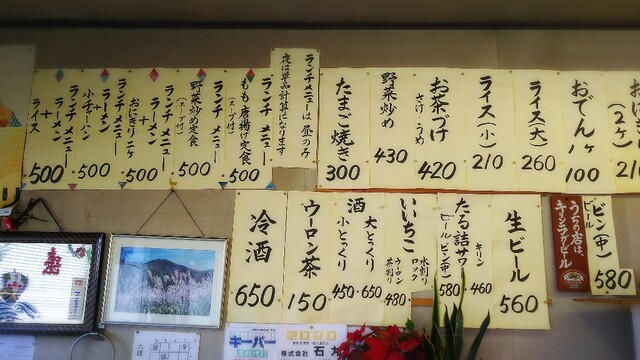 おにぎり
(2ヶ)
おでん1ヶ
100
ライス(大)
260
ライス(小)
210
お茶づけ
さけ・うめ
420
野菜炒め
430
たまご焼き
300
ランチメニューは昼のみ
夜は単品計算になります
ランチメニュー
もも唐揚げ定食
(スープ付)
500
ランチメニュー
野菜炒め定食
(スープ付)
500
ランチメニュー
ラーメン
+
おにぎり二ヶ
500
ランチメニュー
ラーメン
+
小チャーハン
500
ランチメニュー
ラーメン
+
ライス
500
ビン(中)
ビール
580
うちの店は、
キリンラガービール
生ビール
560
たる詰サワー
460
キリン
ビールビン(中)
580
いいちこ
水割り
ロック
ウーロン
茶割り
480
酒
大とっくり
650
小とっくり
450
ウーロン茶
150
冷酒
650
キーパー
2020
株式会社